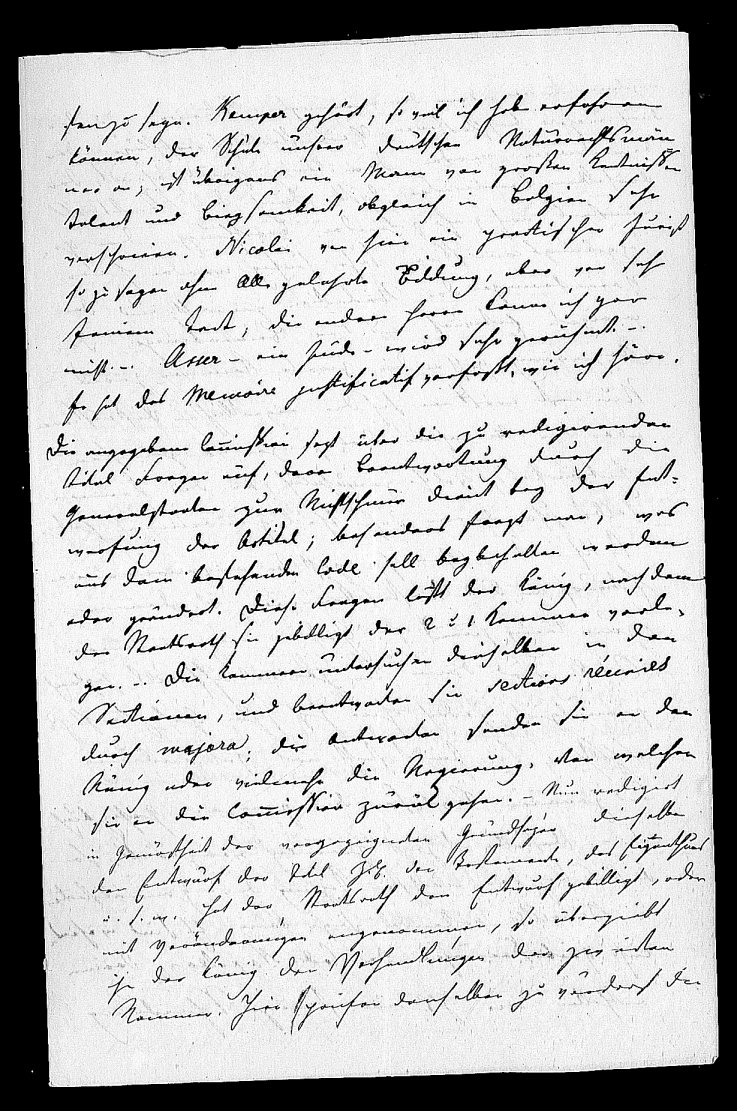 sen zu seyn. Kemper gehört, so viel ich habe erfahren
können, der Schule unsrer deutschen Naturrechtsmän
ner an; ist übrigens ein Mann von großen Kentnissen
Talent und Biegsamkeit, obgleich in Belgien sehr
verschrieen. Nicolai von hier ein practischer Jurist
so zu sagen ohne alle gelehrte Bildung, aber von sehr
feinem Tact, die andern Herrn kenne ich gar
nicht. –. Asser – ein Jude – wird sehr gerühmt. –.
Er hat das Memoire justificatif verfaßt, wie ich höre.
Die angegebene Commission setzt über die zu redigirenden
Titel Fragen auf, deren Beantwortung durch die
Generalstaaten zur Richtschnur dient bey der Ent-
werfung der Artikel; besonders fragt man, was
aus dem bestehenden Code soll beybehalten werden
oder geändert. Diese Fragen läßt der König, nachdem
der Staatsrath sie gebilligt der 2 u 1 Kammer vorle-
gen. –. Die Kammern untersuchen dieselben in den
Sectionen, und beantworten sie sections réunies
durch majora; die Antworten senden sie an den
König oder vielmehr die Regierung, von welcher
sie an die Commission zurückgehen. – Nun redigirt
in Gemäsheit der vorgezeigneten Grundsätze dieselbe
den Entwurf der Titel z.B. der Testamente, des Eigenthums
u. s. w. hat der Staatsrath den Entwurf gebilligt, oder
mit Veränderungen angenommen, so übergiebt
ihn der König den Verhandlungen der zweiten
Kammer. Hier prüfen denselben zu vörderst die